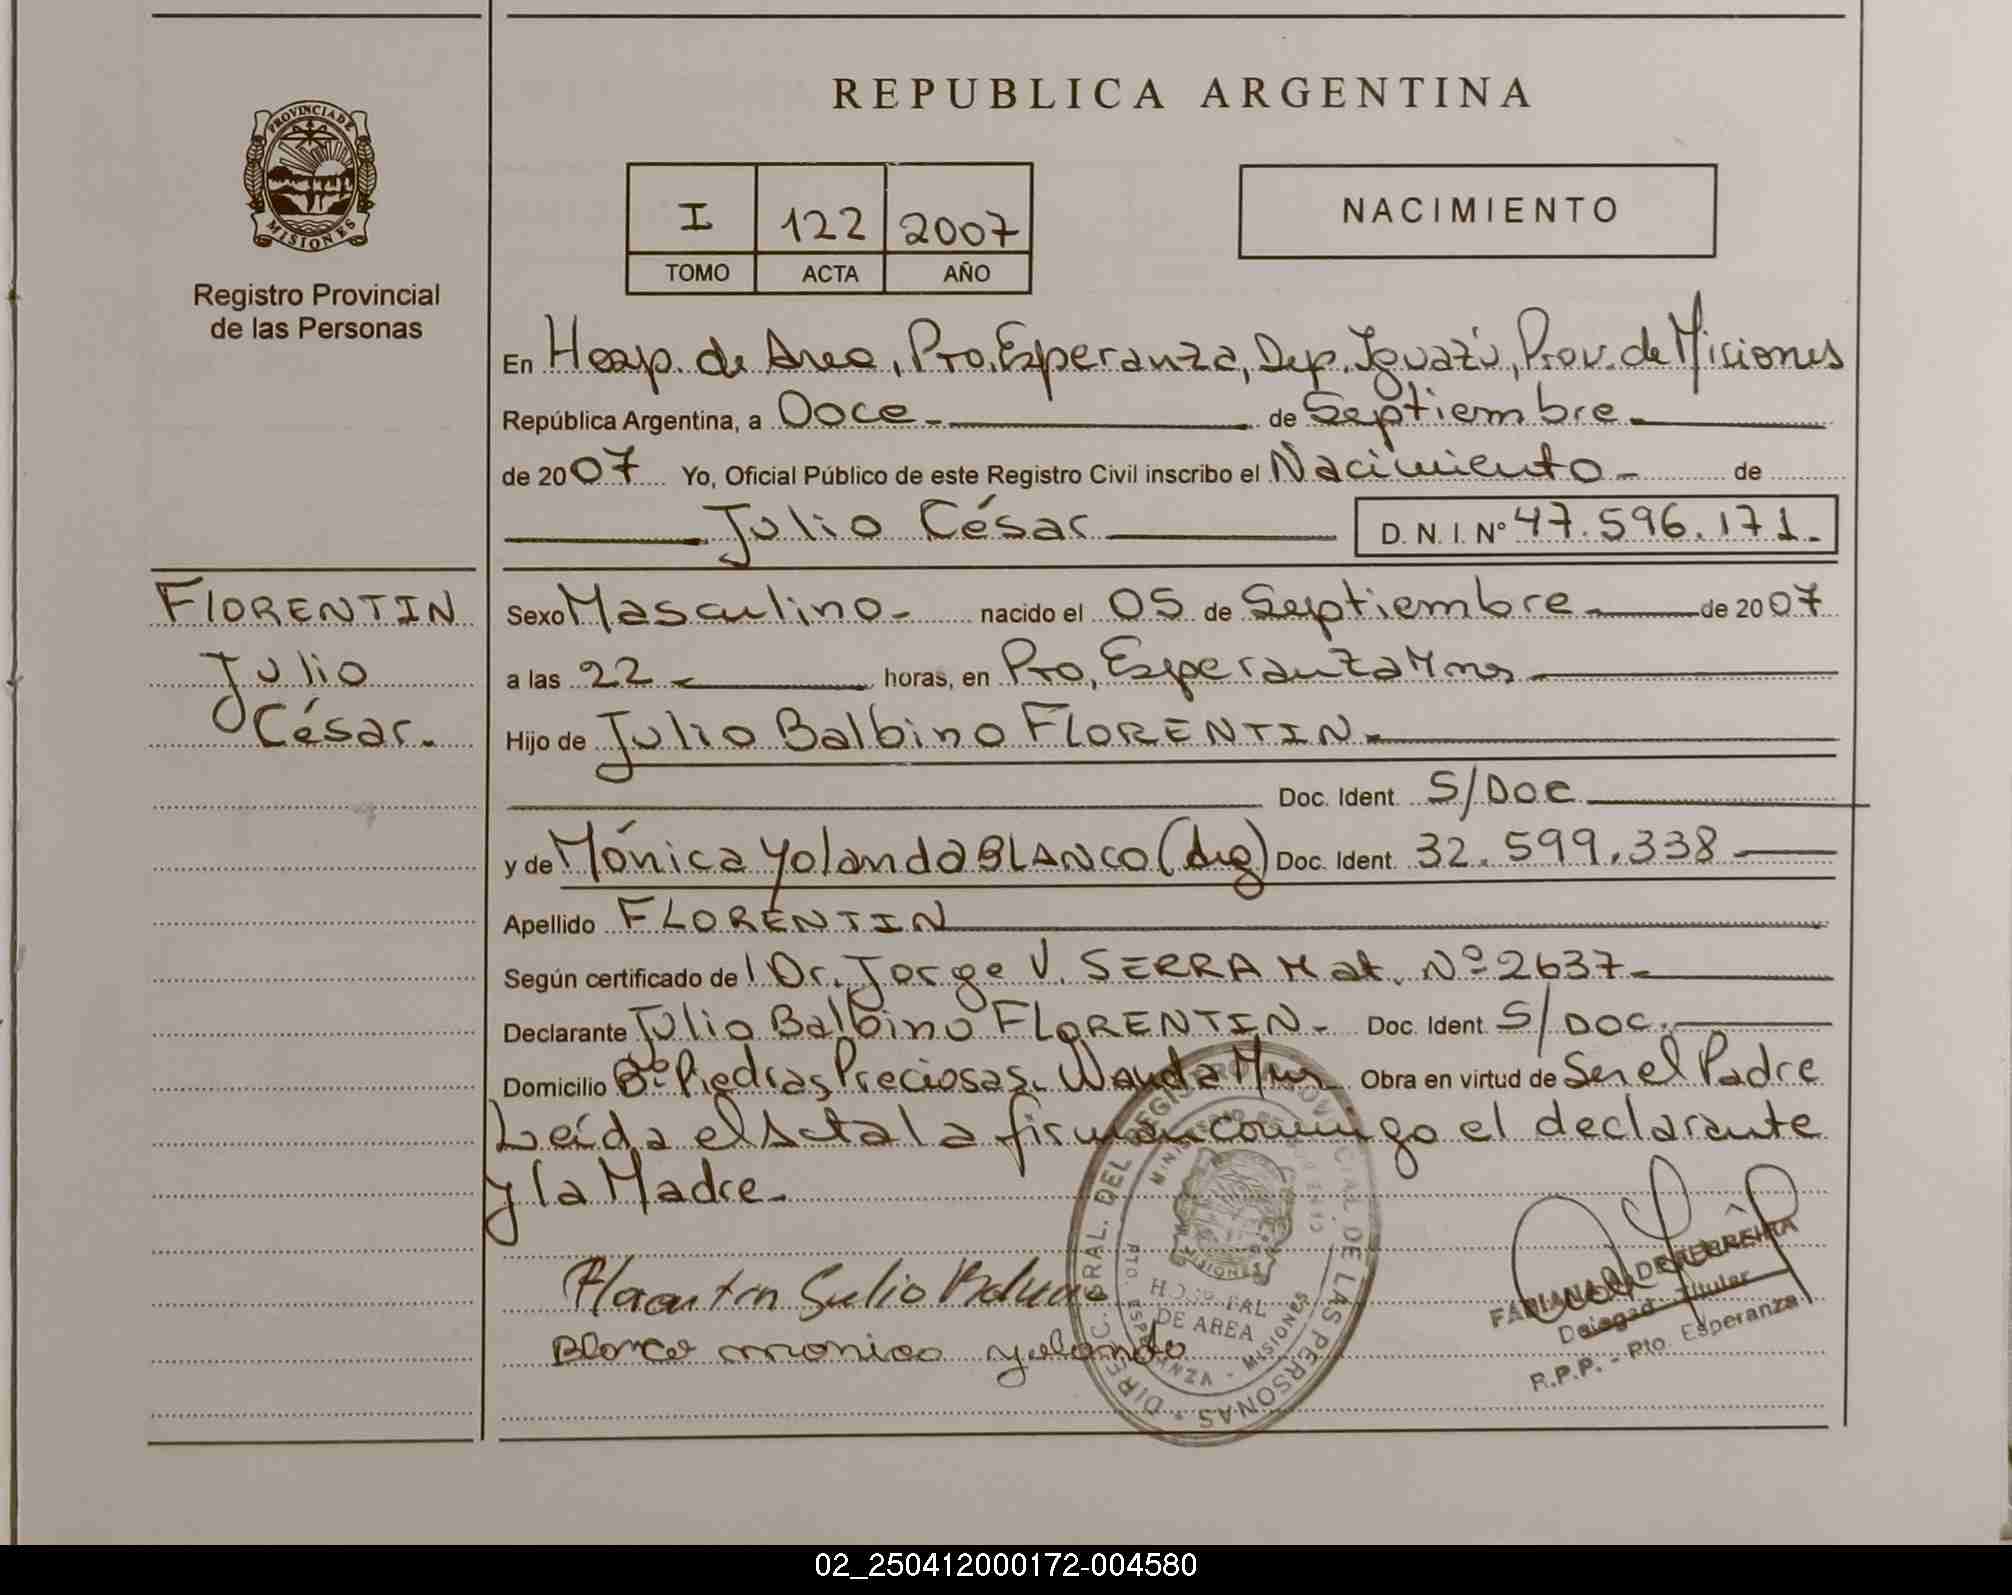 REPUBLICA ARGENTINA
PROVINCIA DE
MISIONES
Registro Provincial
de las Personas
I 122 2007
TOMO ACTA AÑO
NACIMIENTO
En Hosp. de Area, Pto. Esperanza, Dep. Iguazú, Prov. de Misiones
República Argentina, a Doce - de Septiembre
de 2007 Yo, Oficial Público de este Registro Civil inscribo el Nacimiento - de
Julio César D.N.I. Nº 47.596.171.-
FLORENTIN
Julio
César.
Sexo Masculino - nacido el 05 de Septiembre de 2007
a las 22 horas, en Pto. Esperanza Mnes
Hijo de Julio Balbino FLORENTIN.
Doc. Ident. S/Doc
y de Mónica Yolanda BLANCO (arg) Doc. Ident. 32.599.338
Apellido FLORENTIN
Según certificado de Dr. Jorge V. SERRA Mat. Nº 2637-
Declarante Julio Balbino FLORENTIN - Doc. Ident. S/Doc.
Domicilio Bº Piedras Preciosas. Wanda Mnes Obra en virtud de Ser el Padre
Leída el Acta la firman conmigo el declarante
y la Madre-
Florentin Julio Balbino
Blanco monica yolanda
DIREC. GRAL. DEL REGISTRO PROVINCIAL DE LAS PERSONAS
HOSPITAL
DE AREA
PTO. ESPERANZA - MISIONES
MISIONES
FABIANA DE FERREIRA
Delegada Titular
R.P.P. - Pto. Esperanza
02_250412000172-004580